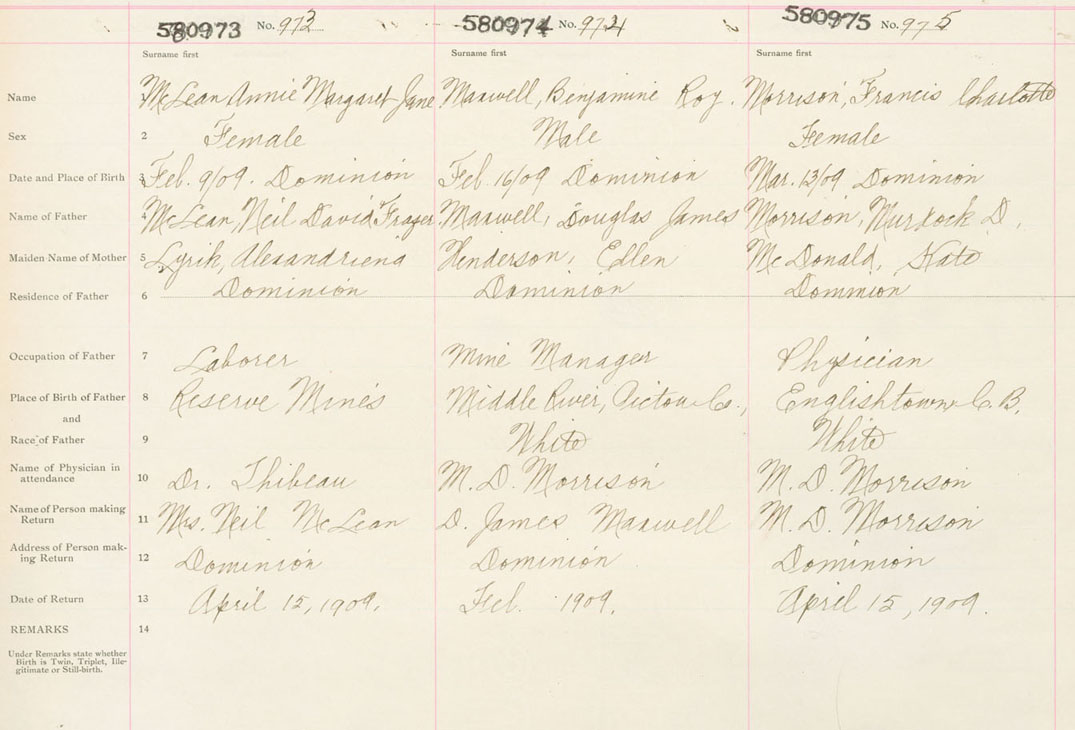 580973 No. 973 580974 No. 974 580975 No. 975
Surname first Surname first Surname first
Name 1 McLean Annie Margaret Jane Maxwell, Benjamine Roy. Morrison, Francis Charlotte
Sex 2 Female Male Female
Date and Place of Birth 3 Feb. 9/09. Dominion Feb 16/09 Dominion Mar. 13/09 Dominion
Name of Father 4 McLean, Neil David Frazer Maxwell, Douglas James Morrison, Murdock D.
Maiden Name of Mother 5 Lyrik, Alexandriena Henderson, Ellen McDonald, Kate
Residence of Father 6 Dominion Dominion Dominion
Occupation of Father 7 Laborer Mine Manager Physician
Place of Birth of Father 8 Reserve Mines Middle River, Pictou Co., Englishtown C. B.
and
Race of Father 9 White White
Name of Physician in
attendance 10 Dr. Thibeau M. D. Morrison M. D. Morrison
Name of Person making
Return 11 Mrs. Neil McLean D. James Maxwell M. D. Morrison
Address of Person mak-
ing Return 12 Dominion Dominion Dominion
Date of Return 13 April 15, 1909. Feb. 1909. April 15, 1909.
REMARKS 14
Under Remarks state whether
Birth is Twin, Triplet, Ille-
gitimate or Still-birth.